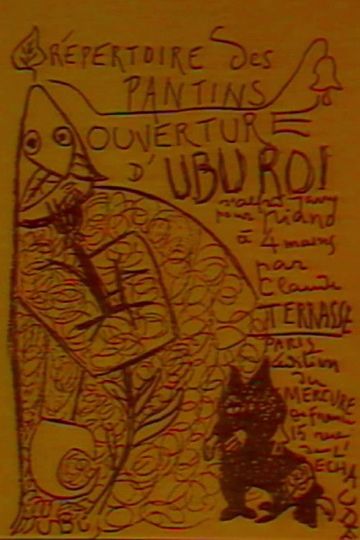 RÉPERTOIRE des
PANTINS
OUVERTURE
D'UBU ROI
d'Alfred Jarry
pour Piano
à 4 mains
par
Claude
TERRASSE
PARIS
édition
du
MERCURE
de France
15 rue
de l'
ECHA
UBU